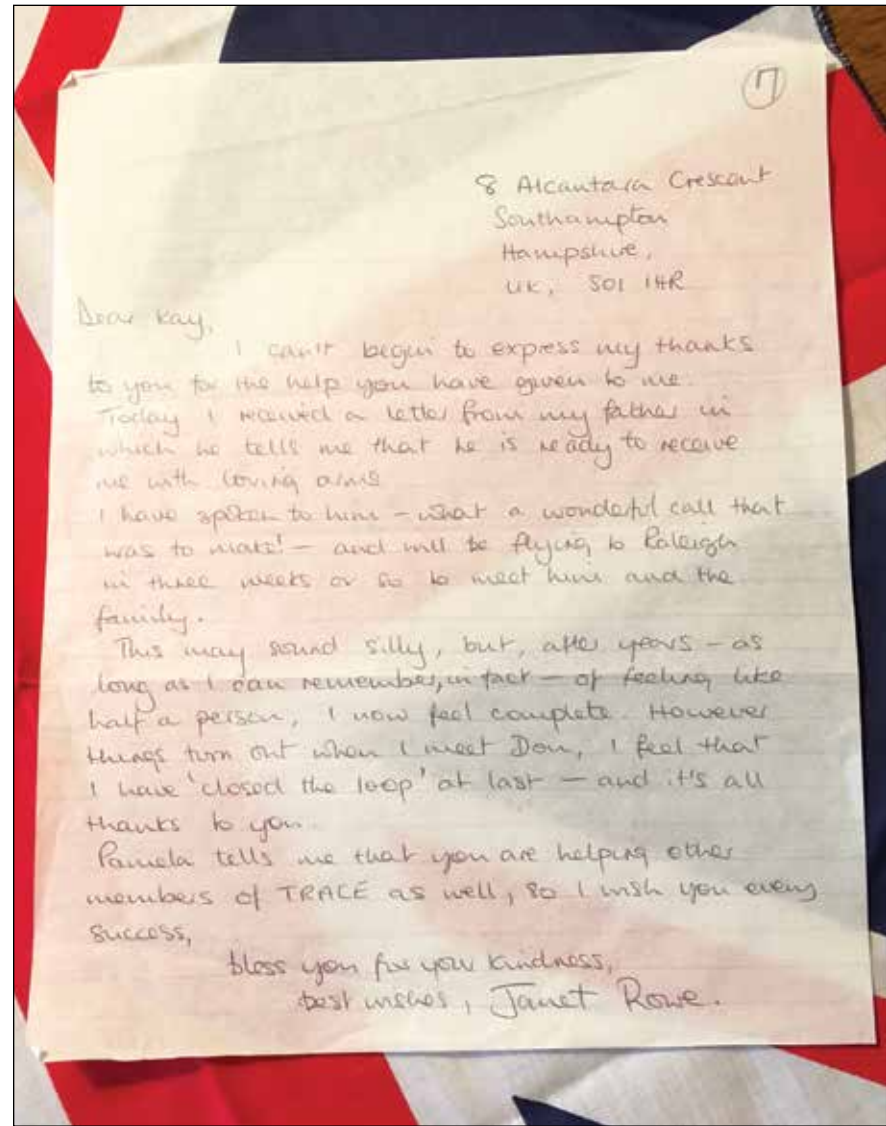 7
8 Alcantara Crescent
Southampton
Hampshire,
UK, SO1 1HR
Dear Kay,
I can't begin to express my thanks
to you for the help you have given to me.
Today I received a letter from my father in
which he tells me that he is ready to receive
me with loving arms
I have spoken to him – what a wonderful call that
was to make! – and will be flying to Raleigh
in three weeks or so to meet him and the
family.
This may sound silly, but, after years – as
long as I can remember, in fact – of feeling like
half a person, I now feel complete. However
things turn out when I meet Don, I feel that
I have 'closed the loop' at last – and it's all
thanks to you.
Pamela tells me that you are helping other
members of TRACE as well, so I wish you every
success,
bless you for your kindness,
best wishes, Janet Rowe.